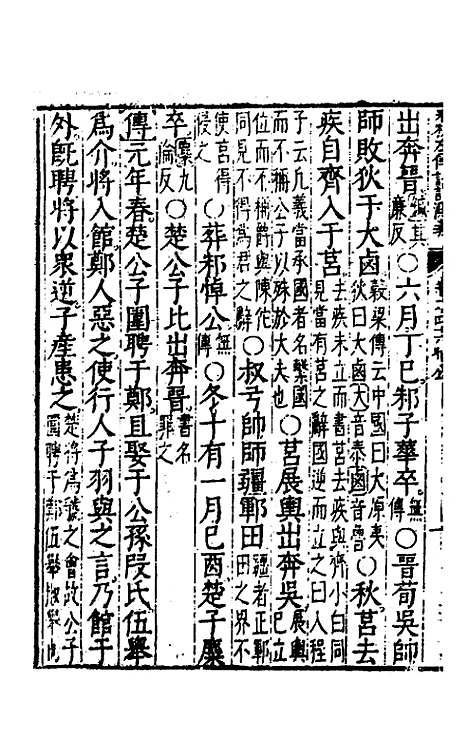 出奔晉鍼其廉反○六月丁巳邾子華卒無傳○晉荀吳帥
師敗狄于大鹵穀梁傳云中國曰大原夷狄曰大鹵大音泰鹵音魯○秋莒去
疾自齊入于莒見當有莒之辭國逆而立之曰入程去疾未立而書莒去疾與齊小白同
子云凡義當承國者名繫國而不稱公子以殊於大夫也○莒展輿出奔吳展輿已立
位而不稱爵與陳佗同見不得爲君之辭○叔弓帥師疆鄆田疆者正鄆田之界不
使莒得侵之○葬邾悼公無傳○冬十有一月己酉楚子麇
卒麇九倫反○楚公子比出奔晉書名罪之
傳元年春楚公子圍聘于鄭且娶于公孫段氏伍舉
爲介將入館鄭人惡之使行人子羽與之言乃館于
外旣聘將以衆逆子產患之楚將爲虢之會故公子圍聘于鄭伍舉椒舉也